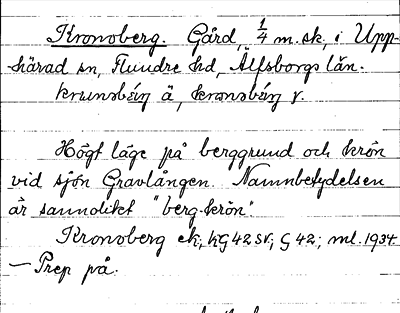 Kronoberg. Gård, 1/4 m. sk, i Upp-
härad sn, Flundre hd, Älfsborgs län.
ä, v.
Högt läge på berggrund och krön
vid sjön Gravlången. Namnbetydelsen
är sannolikt "berg-krön".
Kronoberg ek, hG 42 sv; G 42; ml. 1934
— Prep på.